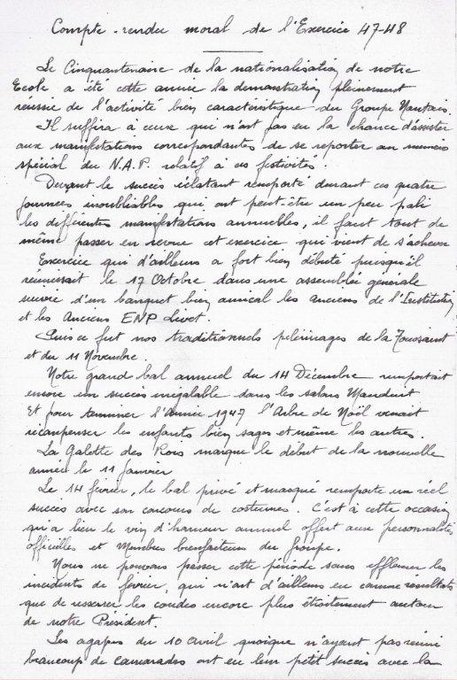 Compte-rendu moral de l'Exercice 47-48
Le Cinquantenaire de la nationalisation de notre
Ecole a été cette année la démonstration pleinement
réussie de l'activité bien caractéristique du Groupe Nantais.
Il suffira à ceux qui n'ont pas eu la chance d'assister
aux manifestations correspondantes de se reporter au numéro
spécial du N.A.P. relatif à ces festivités.
Devant le succès éclatant remporté durant ces quatre
journées inoubliables qui ont peut-être un peu pali
les différentes manifestations annuelles, il faut tout de
même passer en revue cet exercice qui vient de s'achever
Exercice qui d'ailleurs a fort bien débuté puisqu'il
réunissait le 17 Octobre dans une assemblée générale
suivie d'un banquet bien amical les anciens de l'Institution
et les Anciens ENP Livet.
Puis ce fut nos traditionnels pélerinages de la Toussaint
et du 11 Novembre.
Notre grand bal annuel du 14 Décembre remportait
encore un succès inégalable dans les salons Mauduit
Et pour terminer l'année 1947 l'Arbre de Noël venait
récompenser les enfants bien sages et même les autres.
La Galette des Rois marque le début de la nouvelle
année le 11 janvier
Le 14 février, le bal privé et masqué remporte un réel
succès avec son concours de costumes. C'est à cette occasion
qu'a lieu le vin d'honneur annuel offert aux personnalités
officielles et Membres bienfaiteurs du Groupe.
Nous ne pouvons passer cette période sans effleurer les
incidents de février, qui n'ont d'ailleurs eu comme résultats
que de resserrer les coudes encore plus étroitement autour
de notre Président.
Les agapes du 10 avril quoique n'ayant pas réuni
beaucoup de camarades ont eu leur petit succès avec la